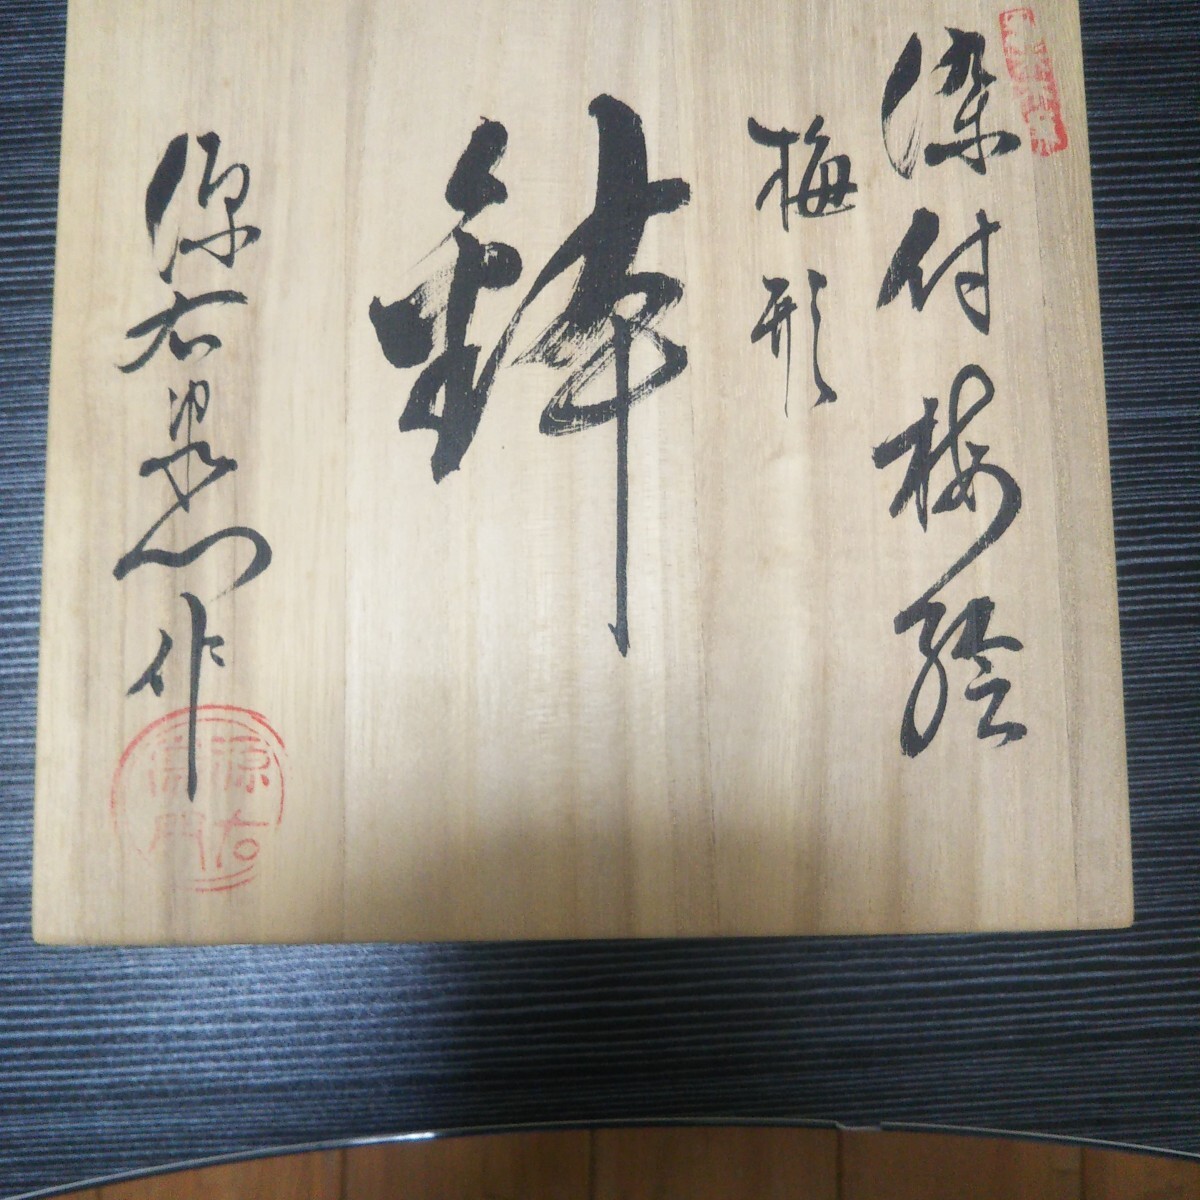 染付梅絵
梅形
鉢
源右衛門作
源右
窯門